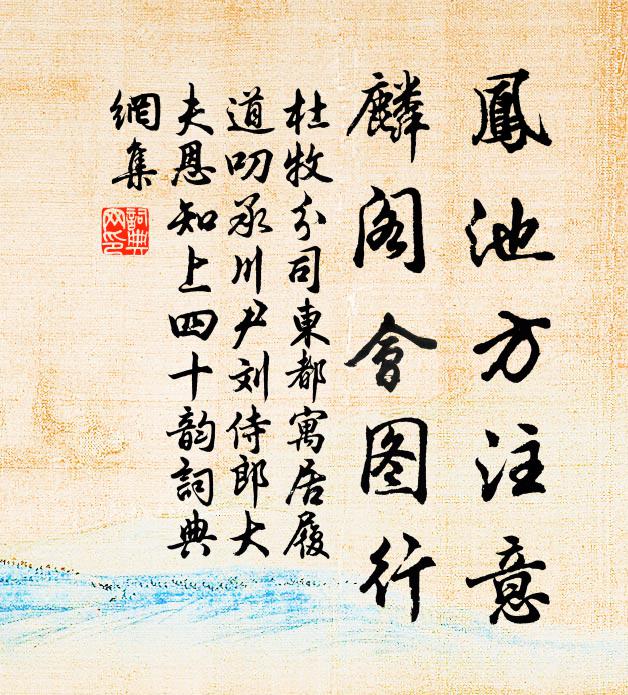 鳳池方注意
麟阁會图行
杜牧分司東都寓居履
道叨承川尹刘侍郎大
夫恩知上四十韵詞典
網集
詞典
网印